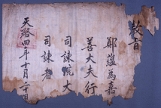 敎旨
鄭蘊爲嘉
善大夫行
司諫院大
司諫者
天啓四年十月二十